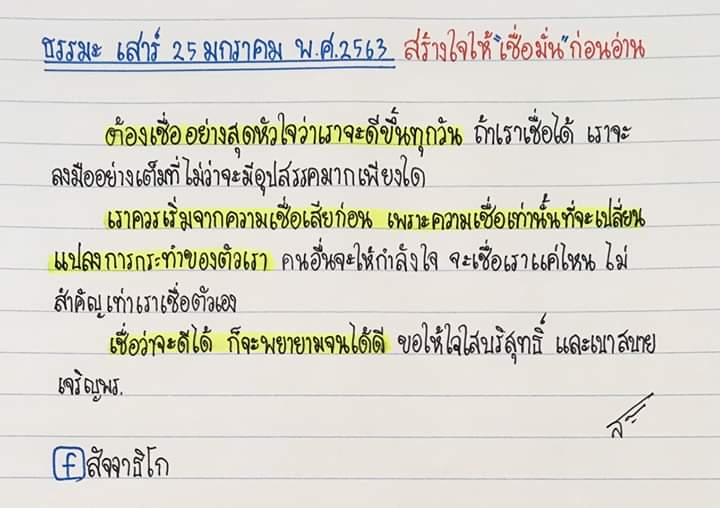 ธรรมะ เสาร์ 25 มกราคม พ.ศ.2563 สร้างใจให้ "เชื่อมั่น" ก่อนอ่าน
ต้องเชื่ออย่างสุดหัวใจว่าเราจะดีขึ้นทุกวัน ถ้าเราเชื่อได้ เราจะ
ลงมืออย่างเต็มที่ไม่ว่าจะมีอุปสรรคมากเพียงใด
เราควรเริ่มจากความเชื่อเสียก่อน เพราะความเชื่อเท่านั้นที่จะเปลี่ยน
แปลงการกระทำของตัวเรา คนอื่นจะให้กำลังใจ จะเชื่อเราแค่ไหน ไม่
สำคัญเท่าเราเชื่อตัวเอง
เชื่อว่าจะดีได้ ก็จะพยายามจนได้ดี ขอให้ใจใสบริสุทธิ์ และเบาสบาย
เจริญพร.
f สัจจาธิโก